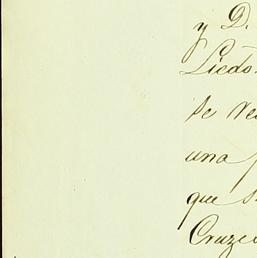 y D.
Liedo
se ve
una
que s
Cruze